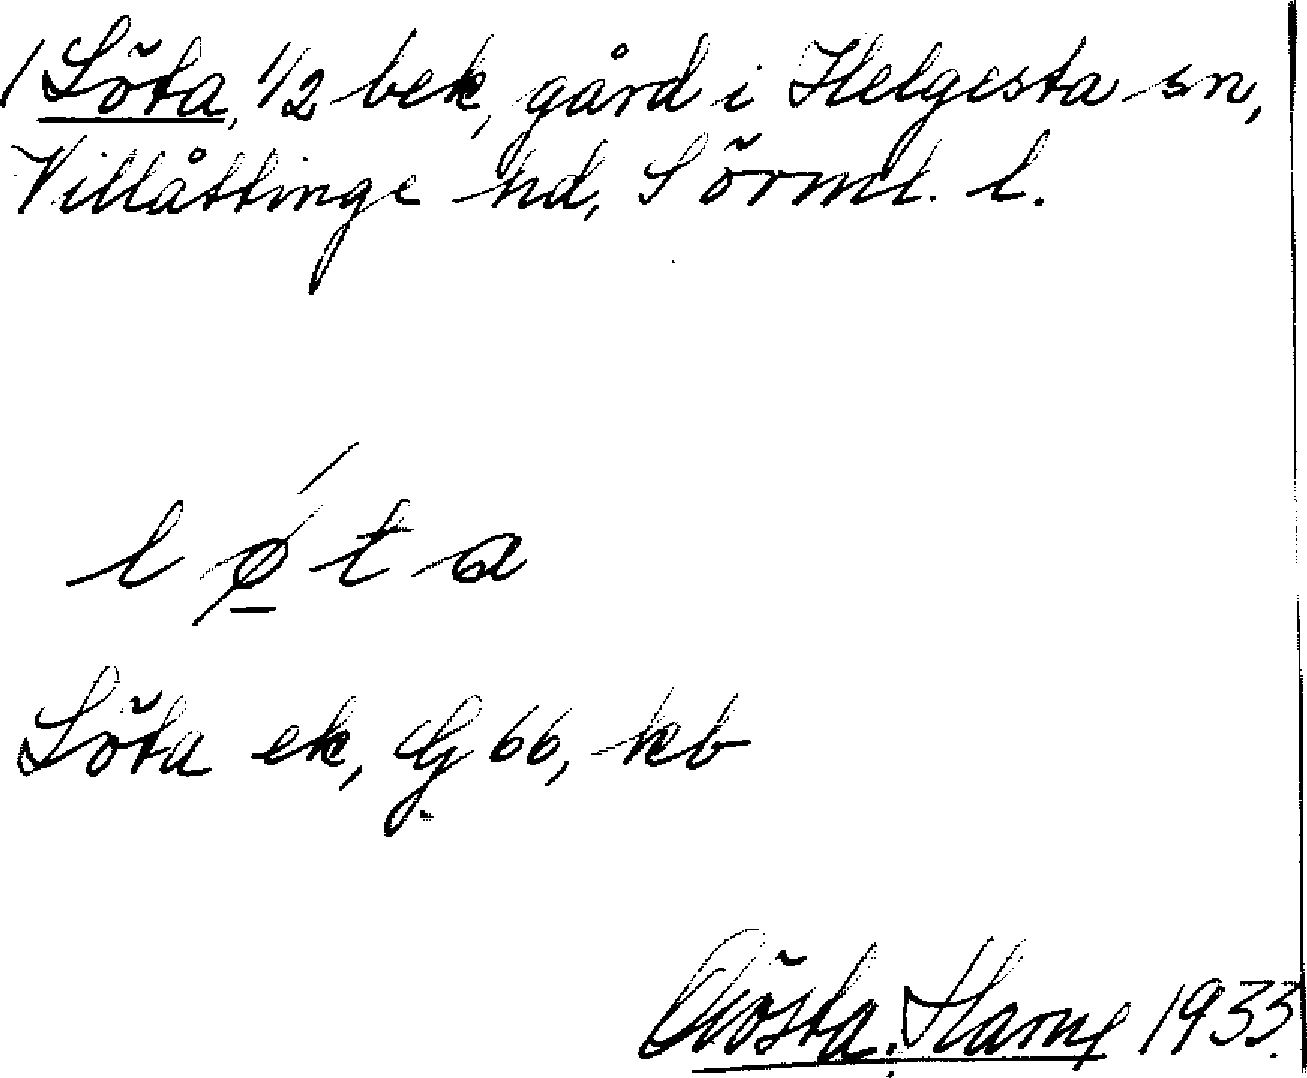 1 Löta, 1/2 bek, gård i Helgesta sn,
Villåttinge hd, Sörml. l.
løta
Löta ek, G 66, kb
Gösta Harry 1933.